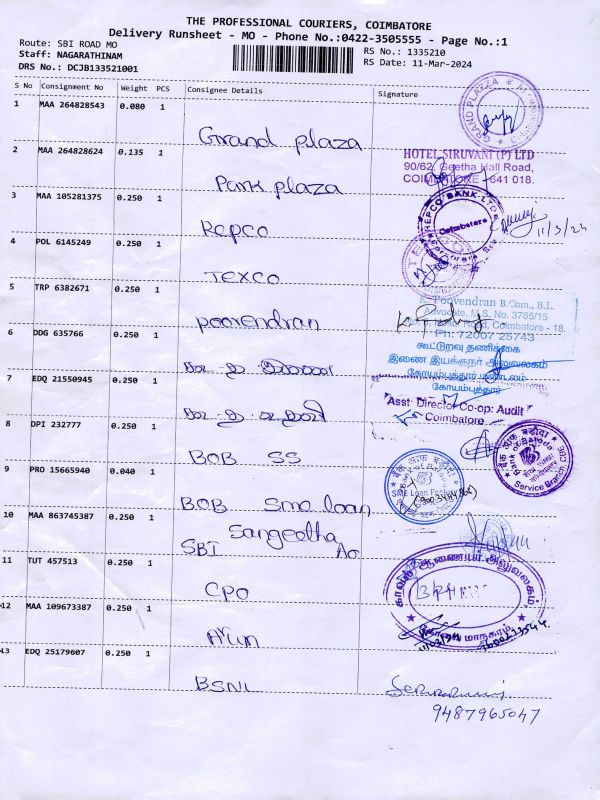 THE PROFESSIONAL COURIERS, COIMBATORE
Delivery Runsheet - MO - Phone No.:0422-3505555 - Page No.:1
Route: SBI ROAD MO
Staff: NAGARATHINAM
DRS No.: DCJB133521001
RS No.: 1335210
RS Date: 11-Mar-2024
S No Consignment No Weight PCS Consignee Details Signature
1 MAA 264828543 0.080 1
Grand plaza
GRAND PLAZZA
2 MAA 264828624 0.135 1
Park plaza
HOTEL SIRUVANI (P) LTD
90/62, Geetha Hall Road,
COIMBATORE - 641 018.
3 MAA 105281375 0.250 1
Repco
REPCO BANK LTD
Coimbatore
11/3/24
4 POL 6145249 0.250 1
TEXCO
5 TRP 6382671 0.250 1
poorendran
K. Poovendran B.Com., B.L.
Advocate, M.S. No. 3755/15
Road, Coimbatore - 18.
Ph: 72007 25743
6 DDG 635766 0.250 1
கூட்டுறவு தணிக்கை
இணை இயக்குநர் அலுவலகம்
கோயம்புத்தூர் மண்டலம்
கோயம்புத்தூர்
7 EDQ 21550945 0.250 1
Asst Director Co-op: Audit
Coimbatore
8 DPI 232777 0.250 1
BOB SS
बैंक ऑफ़ बड़ौदा
Bank of Baroda
Service Branch CBE
9 PRO 15665940 0.040 1
BOB Sme loan
Sangeetha
बैंक ऑफ़ बड़ौदा
Bank of Baroda
SME Loan Factory
10 MAA 863745387 0.250 1
SBI Ao
11 TUT 457513 0.250 1
CPO
காவல் ஆணையர் அலுவலகம்,
கோவை மாநகரம்
12 MAA 109673387 0.250 1
Arun
13 EDQ 25179607 0.250 1
BSNL
9487965047